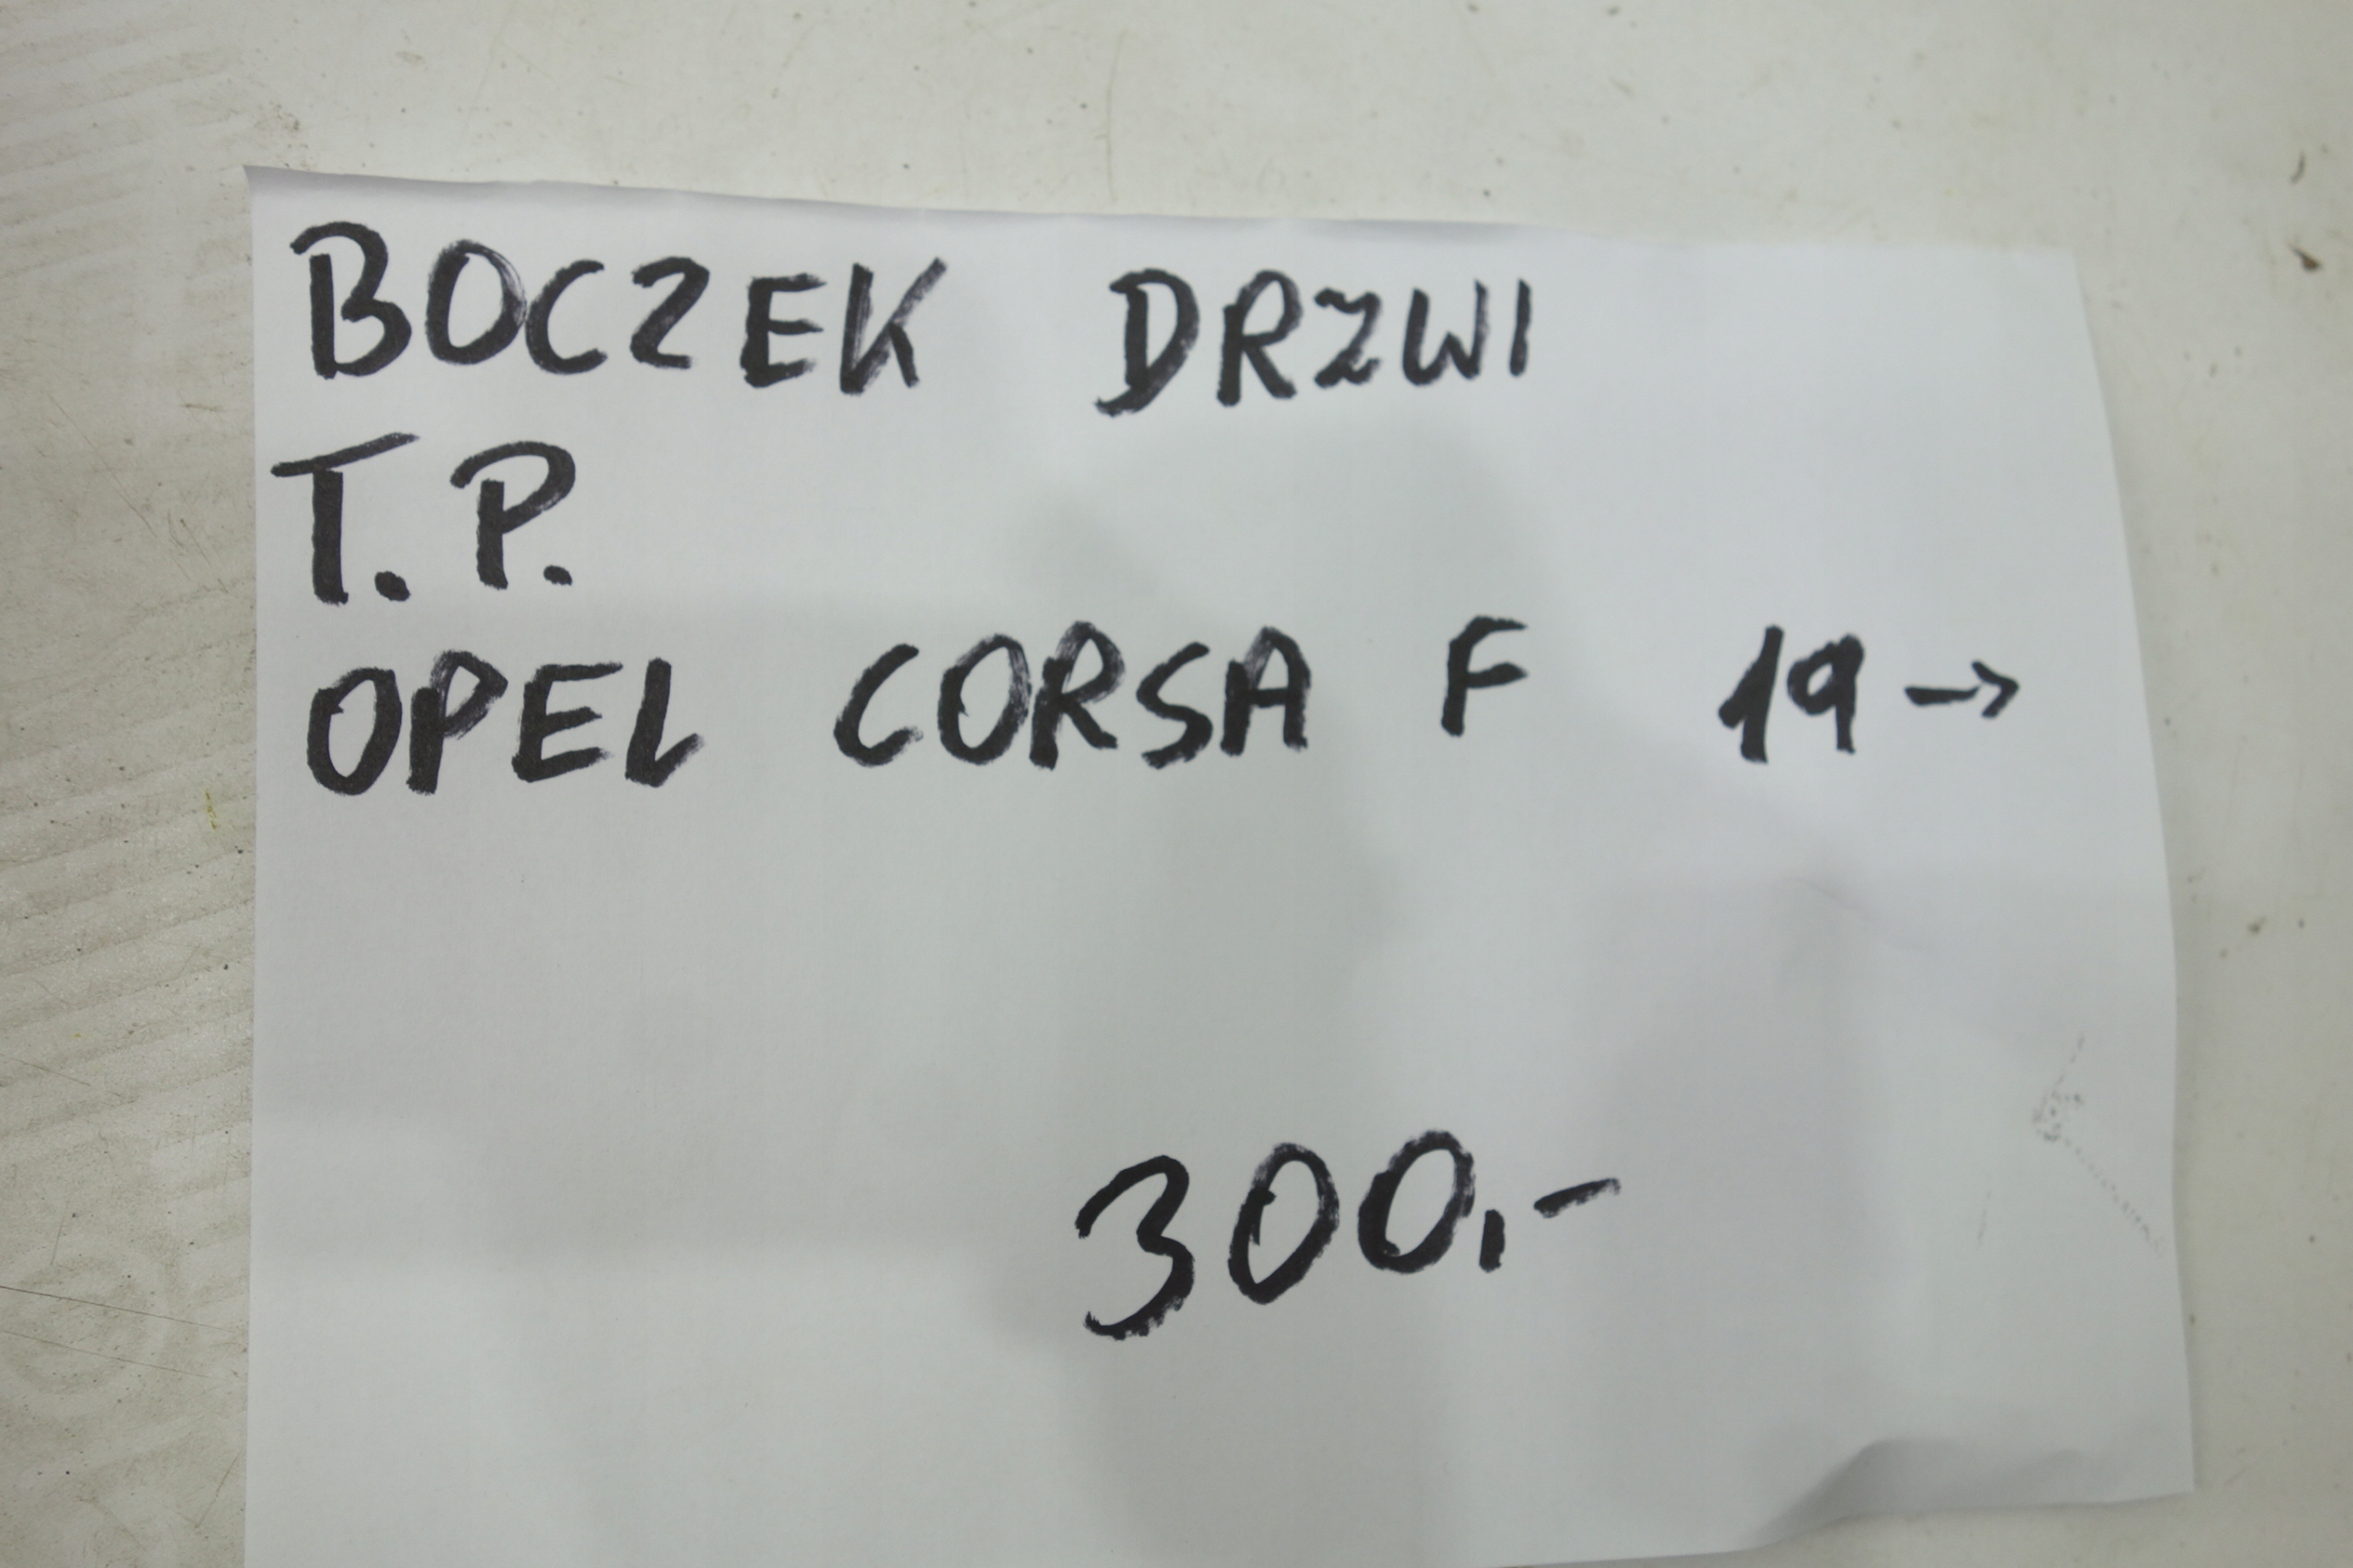 BOCZEK DRZWI
T.P.
OPEL CORSA F 19->
300,-